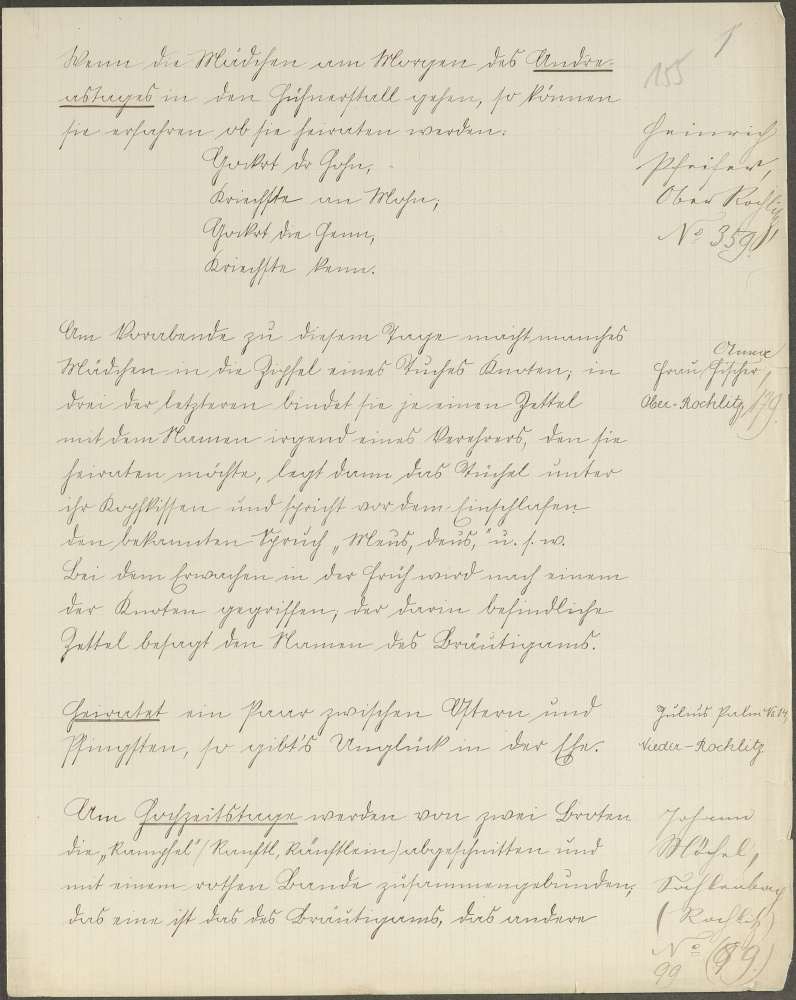 155
1
Wenn die Mädchen am Morgen des Andre-
astages in den Hühnerstall gehen, so können
sie erfahren ob sie heiraten werden:
Gockrt dr Hohn,
Kriechste an Mohn;
Gockrt die Henn,
Kriechste kenn.
Heinrich
Pfeifer,
Ober Rochlitz
No 359.
Am Vorabende zu diesem Tage macht manches
Mädchen in die Zipfel eines Tuches Knoten; in
drei der letzteren bindet sie je einen Zettel
mit dem Namen irgend eines Verehrers, den sie
heiraten möchte, legt dann das Tüchel unter
ihr Kopfkissen und spricht vor dem Einschlafen
den bekannten Spruch „Meus, deus," u. s. w.
Bei dem Erwachen in der Früh wird nach einem
der Knoten gegriffen; der darin befindliche
Zettel besagt den Namen des Bräutigams.
Anna
Frau Fischer,
Ober-Rochlitz, 179.
Heiratet ein Paar zwischen Ostern und
Pfingsten, so gibt's Unglück in der Ehe.
Julius Palm No
Nieder-Rochlitz
Am Hochzeitstage werden von zwei Broten
die „Rampfel" (Ranftl, Ränftlein) abgeschnitten und
mit einem rothen Bande zusammengebunden;
das eine ist das des Bräutigams, das andere
Johann
Möchel,
(Rochlitz)
No
99